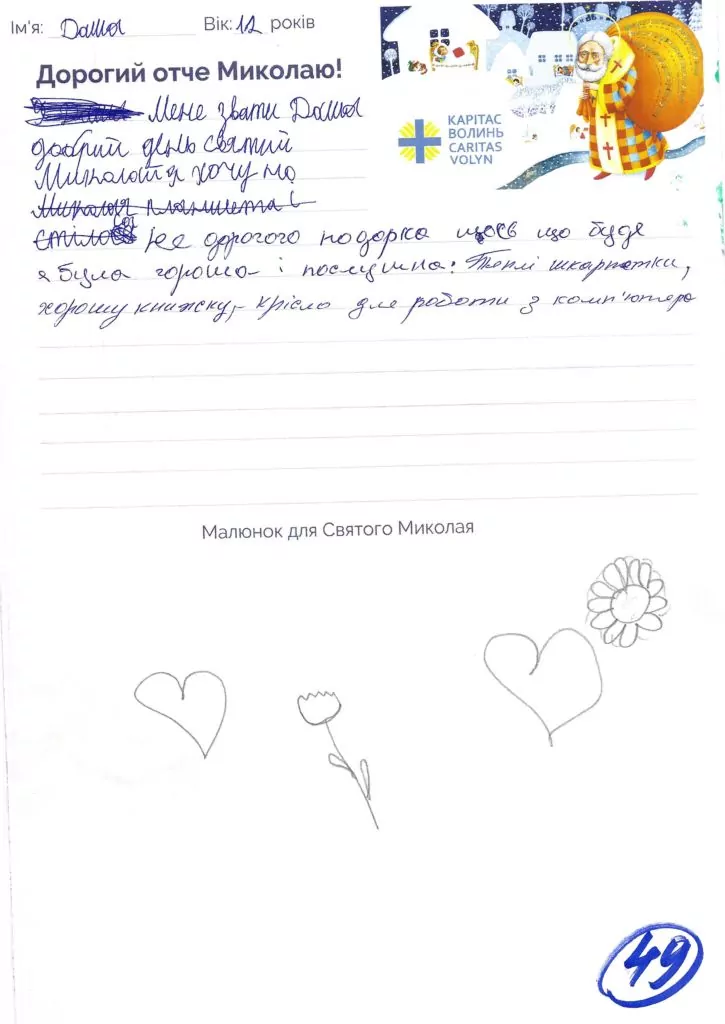 Ім'я: Даша Вік: 12 років
Дорогий отче Миколаю!
КАРІТАС
ВОЛИНЬ
CARITAS
VOLYN
Мене звати Даша
добрий день святий
Миколай я хочу на
Миколая планшета і
стілос не дорогого подарка щось що буде
я була гороша і послушна: Теплі шкарпетки,
хорошу книжку, крісло для роботи з комп'ютера
Малюнок для Святого Миколая
49